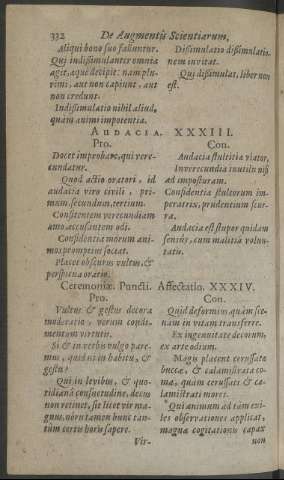 332 De Augmentis Scientiarum,
Aliqui bono suo falluntur.
Qui indissimulanter omnia
agit, æquè decipit: nam plu-
rimi, aut non capiunt, aut
non credunt.
Indissimulatio nihil aliud,
quàm animi impotentia.
Dissimulatio dissimulatio-
nem invitat.
Qui dissimulat, liber non
est.
AUDACIA. XXXIII.
Pro.
Docet improbare, qui vere-
cundatur.
Quod actio oratori, id
audacia viro civili, pri-
mum, secundum, tertium.
Confitentem verecundiam
amo, accusantem odi.
Confidentia morum ani-
mos promptius sociat.
Placet obscurus vultus, &
perspicua oratio.
Con.
Audacia stultitiæ viator,
Inverecundia inutilis nisi
ad imposturam.
Confidentia stultorum im-
peratrix, prudentium scur-
ra.
Audacia est stupor quidam
sensus, cum malitia volun-
tatis.
Ceremoniæ. Puncti. Affectatio. XXXIV.
Pro.
Vultus & gestus decora
moderatio, verum condi-
mentum virtutis.
Si & in verbis vulgo pare-
mus, quid ni in habitu, &
gestu?
Qui in levibus, & quo-
tidiana consuetudine, decus
non retinet, sit licet vir ma-
gnus, noris tamen hunc tan-
tum certis horis sapere.
Vir-
Con.
Quid deformius quàm sce-
nam in vitam transferre.
Ex ingenuitate decorum,
ex arte odium.
Magis placent cerussatæ
buccæ, & calamistrata co-
ma, quàm cerussati & ca-
lamistrati mores.
Qui animum ad tam exi-
les observationes applicat,
magnæ cogitationis capax
non